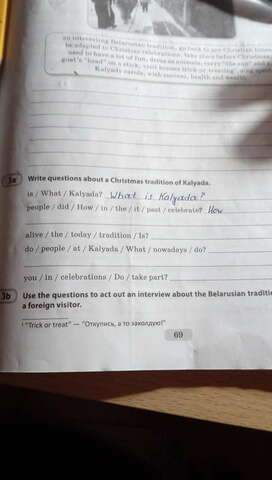 an interesting Belarusian tradition, go back to pre-Christian times
be adapted to Christian celebrations, take place before Christmas
need to have a lot of fun, dress as animals, carry "the sun" and a
goat's "head" on a stick, visit houses trick or treating¹, sing
Kalyady carols, wish success, health and wealth.
3a Write questions about a Christmas tradition of Kalyada.
is / What / Kalyada? What is Kalyada?
people / did / How / in / the / it / past / celebrate? How
alive / the / today / tradition / Is?
do / people / at / Kalyada / What / nowadays / do?
you / in / celebrations / Do / take part?
3b Use the questions to act out an interview about the Belarusian
a foreign visitor.
¹ "Trick or treat" — "Откупись, а то заколдую!"
69